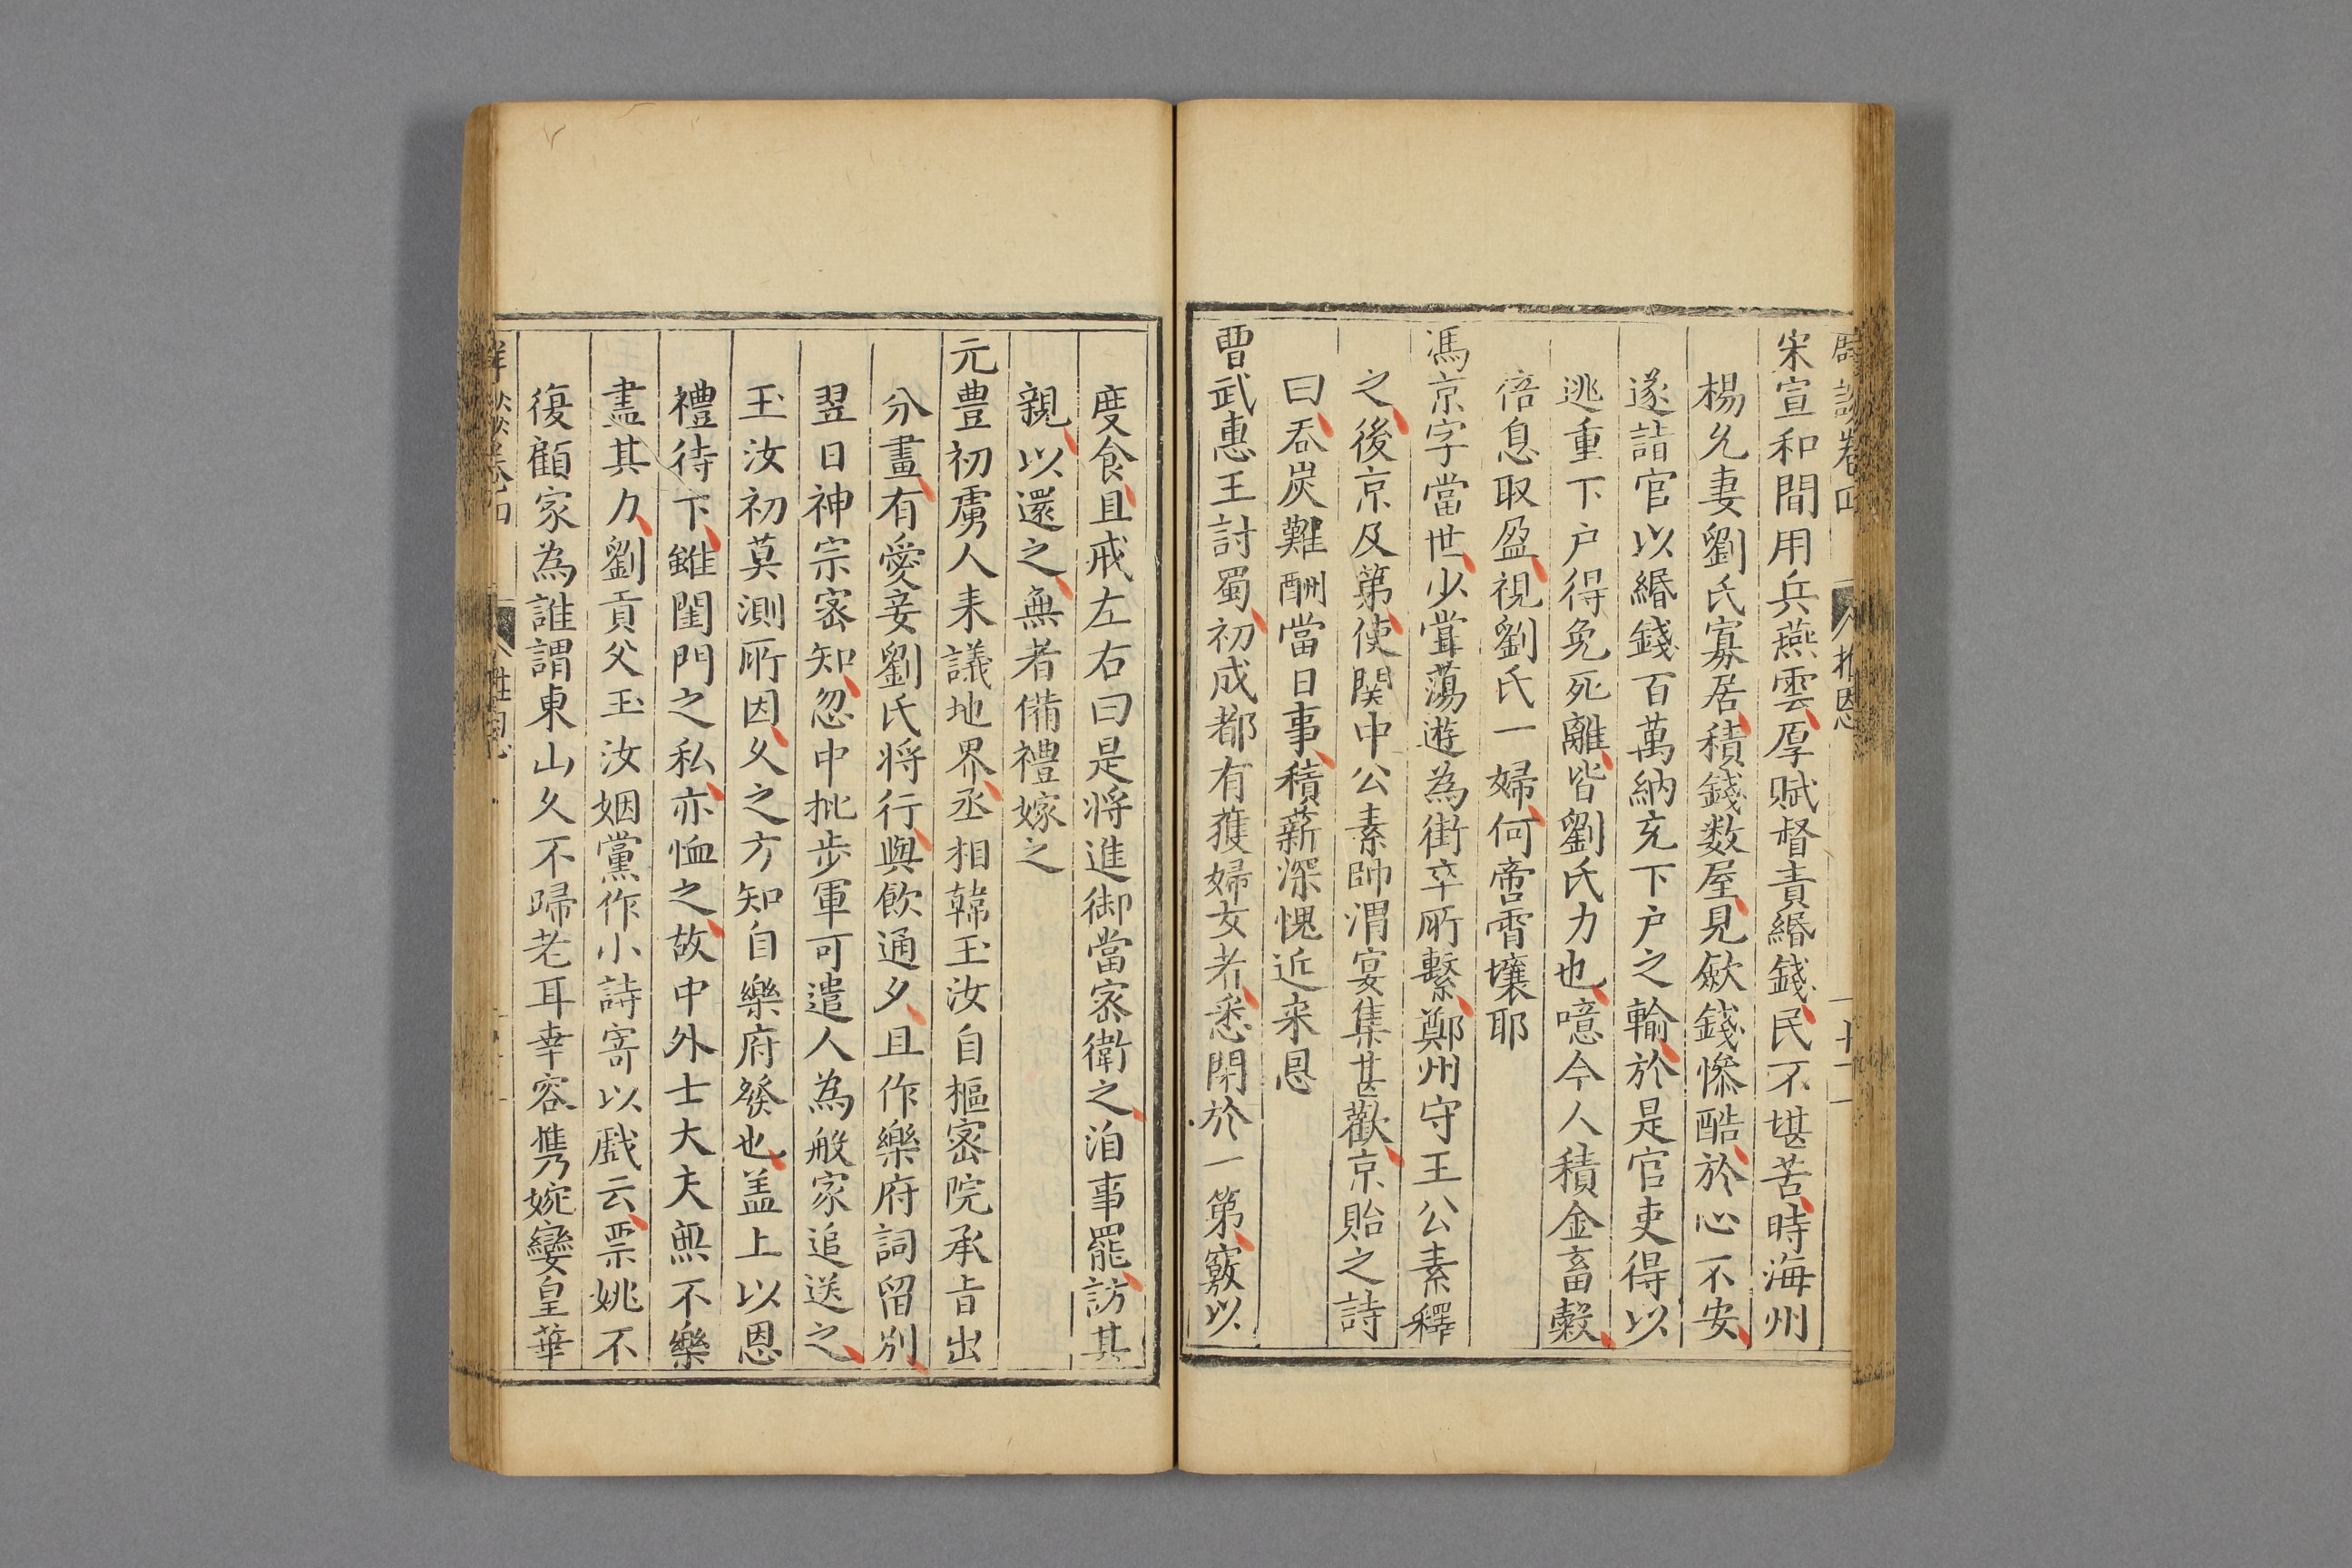 卷四 推恩 十一
宋宣和間用兵燕雲厚賦督責緡錢民不堪苦時海州
楊允妻劉氏寡居積錢数屋見斂錢慘酷於心不安
遂詣官以緡錢百萬納充下户之輸於是官吏得以
逃重下户得免死離皆劉氏力也噫今人積金畜糓
倍息取盈視劉氏一婦何啻霄壤耶
馮京字當世少甞蕩遊為街卒所繫鄭州守王公素釋
之後京及第使関中公素帥渭宴集甚歡京貽之詩
曰吞炭難酬當日事積薪深愧近来恩
曹武惠王討蜀初成都有獲婦女者悉閉於一第竅以
度食且戒左右曰是将進御當宻衛之洎事罷訪其
親以還之無者備禮嫁之
元豊初虜人来議地界丞相韓玉汝自樞宻院承㫖出
分畫有愛妾劉氏将行與飲通夕且作樂府詞留别
翌日神宗宻知忽中批步軍可遣人為般家追送之
玉汝初莫測所因久之方知自樂府發也盖上以恩
禮待下雖閨門之私亦恤之故中外士大夫無不樂
盡其力劉貢父玉汝姻黨作小詩寄以戱云票姚不
復顧家為誰謂東山久不歸老耳幸容携婉孌皇華